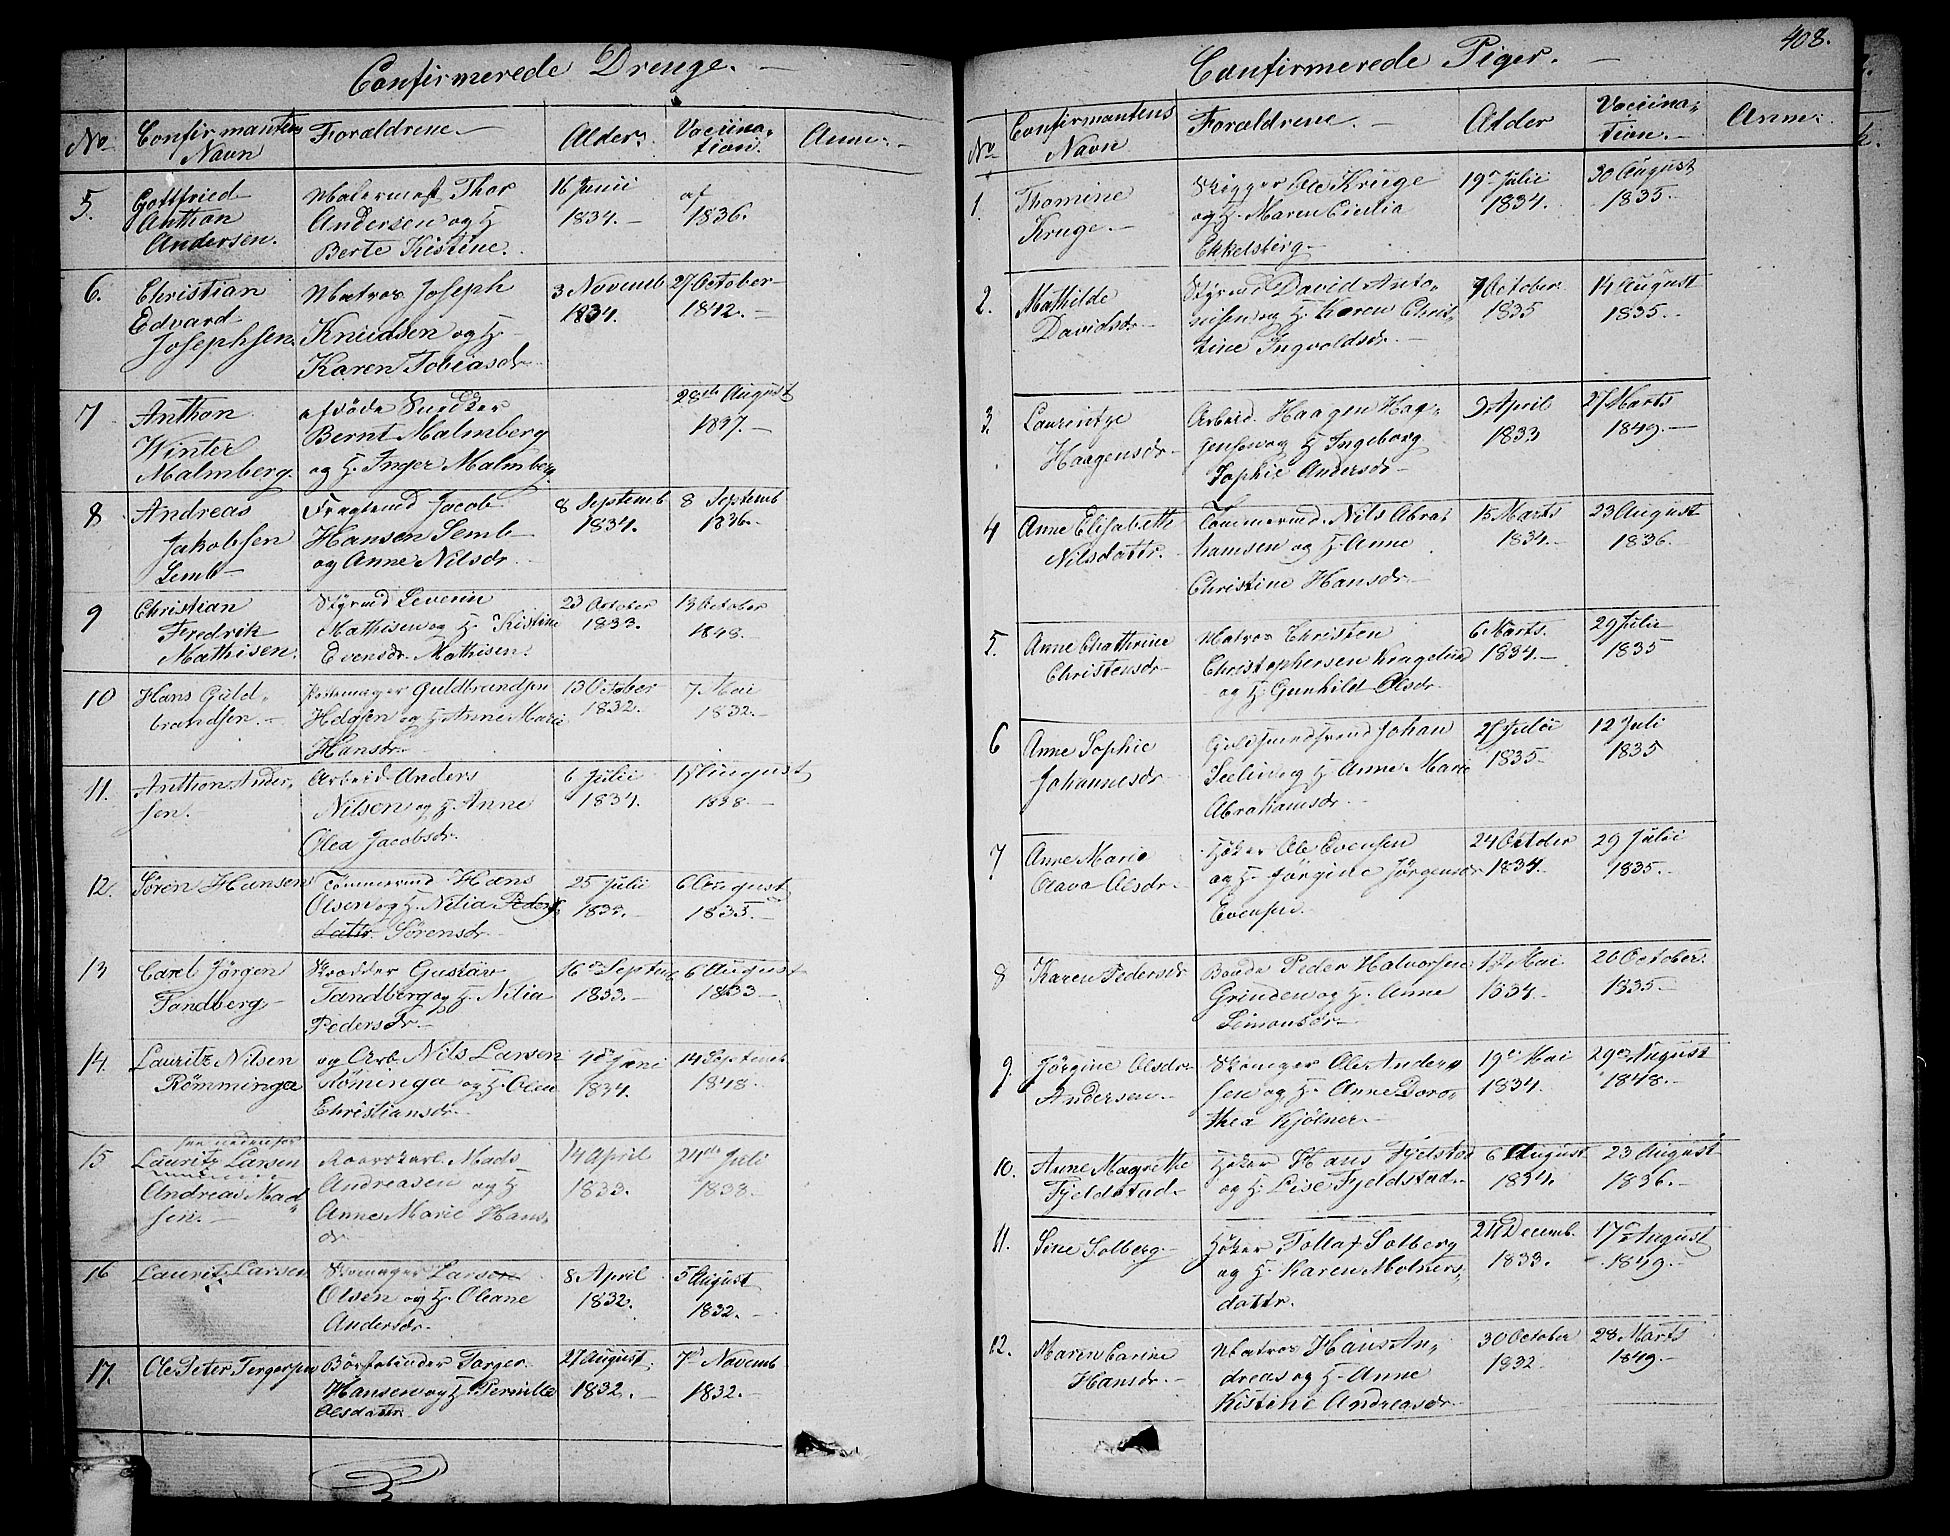 Confirmerede Drenge. —
No
Confirmantens
Navn
Forældrene. —
Alder.
Vaccina-
tion.
Anm. —
5.
Gottfried
Anthon
Andersen.
Malermest Thor
Andersen og H.
Berte Kistine.
16 Junii
1834. —
af
1836.
6.
Christian
Edvard
Josephsen.
Matros Joseph
Knudsen og H.
Karen Tobiasdr
3 Novemb
1834.
27 October
1842. —
7
Anthon
Winter
Malmberg.
afdöde Snedker
Bernt Malmberg
og H. Inger Malmberg.
28de August
1837. —
8
Andreas
Jakobsen
Lemb —
Fragtemd Jacob
Hansen Lemb
og Anne Nilsdr.
8 Septemb
1834. —
8 Septemb
1836. —
9
Christian
Fredrik
Mathisen.
Styrmd Severin
Mathisen og H. Kistine
Evensdr. Mathisen.
23 October
1833.
13 October
1848. —
10
Hans Guld-
brandsen. —
Guldbrandsen
og H. Anne Marie
Hansdr. —
13 October
1832.
7 Mai
1832. —
11.
Anthon Ander-
sen. —
Arbeid. Anders
Nilsen og H. Anne
Olea Jacobsdr.
6 Julii
1834.
17 August
1838. —
12.
Sören Hansen
Tömmermd Hans
Olsen og H. Nilia Peders
dattr. Sörensdr.
25 Julii
1833. —
6 August
1835. —
13
Carl Jörgen
Tandberg —
Skrædder Gustav
Tandberg og H. Nilia
Pedersdr. —
16de Septemb
1833. —
6 August
1833 —
14.
Lauritz Nilsen
Römminga
og Arb. Nils Larsen
Röminga og H. Olea
Christiansdr. —
4de Juni
1834.
14 Septemb
1848. —
15
see nedenfor
Lauritz Larsen
Andreas Mad-
sen. —
Roerskarl Mads
Andreasen og H
Anne Marie Hans-
dr.
14 April
1833.
24de Juli
1838. —
16
Lauritz Larsen
Skomager Larsen
Olsen og H. Oleane
Andersdr. —
8 April
1832. —
5 August
1832. —
17.
Ole Peter Tergersen
Börstebinder Targer
Hansen og H. Pernille
Olsdattr.
27 August
1832. —
7de Novemb
1832. —
408.
Confirmerede Piger. —
No
Confirmantens
Navn
Forældrene. —
Alder
Vaccina-
tion. —
Anm.
1.
Thomine
Kruge. —
Skigger Ole Kruge
og H. Maren Cicilia
Ekkelsberg —
19de Julii
1834. —
30 August
1835. —
2.
Mathilde
Davidsdr. —
Styrmd David Anto-
nisen og H. Karen Chris-
tine Ingvoldsdr. —
7 October
1835
14 August
1835. —
3.
Laurentze
Haagensdr —
Arbeid. Haagen Haa-
gensen og H Ingeborg
Sophie Andersdr —
9 April
1833
27 Marts
1849. —
4
Anne Elisabeth
Nilsdattr. —
Tömmermd. Nils Abra-
hamsen og H. Anne
Christine Hansdr —
15 Marts
1834. —
23 August
1836. —
5.
Anne Chathrine
Christensdr —
Matros Christen
Christophersen Kragelund
og H. Gunhild Olsdr.
6 Marts.
1834. —
29 Julii
1835
6
Anne Sophie
Johannesdr —
Guldsmedsvend Johan
og H Anne Marie
Abrahamsdr. —
27 Julii
1835. —
12 Juli
1835
7
Anne Marie
Olava Olsdr. —
Höker Ole Evensen
og H. Jörgine Jörgensdr
Evensen. —
24 October
1834. —
29 Julii
1835. —
8
Karen Pedersdr
Bonde Peder Halvorsen
Grinden og H. Anne
Simonsdr —
1ste Mai
1834. —
20 October.
1835. —
9
Jörgine Olsdr
Andersen. —
Skomager Ole Ander-
sen og H. Anne Doro-
thea Kjölner. —
19de Mai
1834.
29de August
1848. —
10.
Anne Magrethe
Fjeldstad. —
Höker Hans Fjelstad
og H. Lise Fjeldstad. —
6 August
1834.
23 August
1836. —
11.
Sine Solberg —
Höker Tollaf Solberg
og H. Karen Molners-
dattr.
24 Decemb.
1833. —
17de August
1849. —
12.
Maren Carine
Hansdr. —
Matros Hans An-
dreas og H. Anne
Kistine Andreasdr.
30 October
1832. —
28 Marts
1849. —